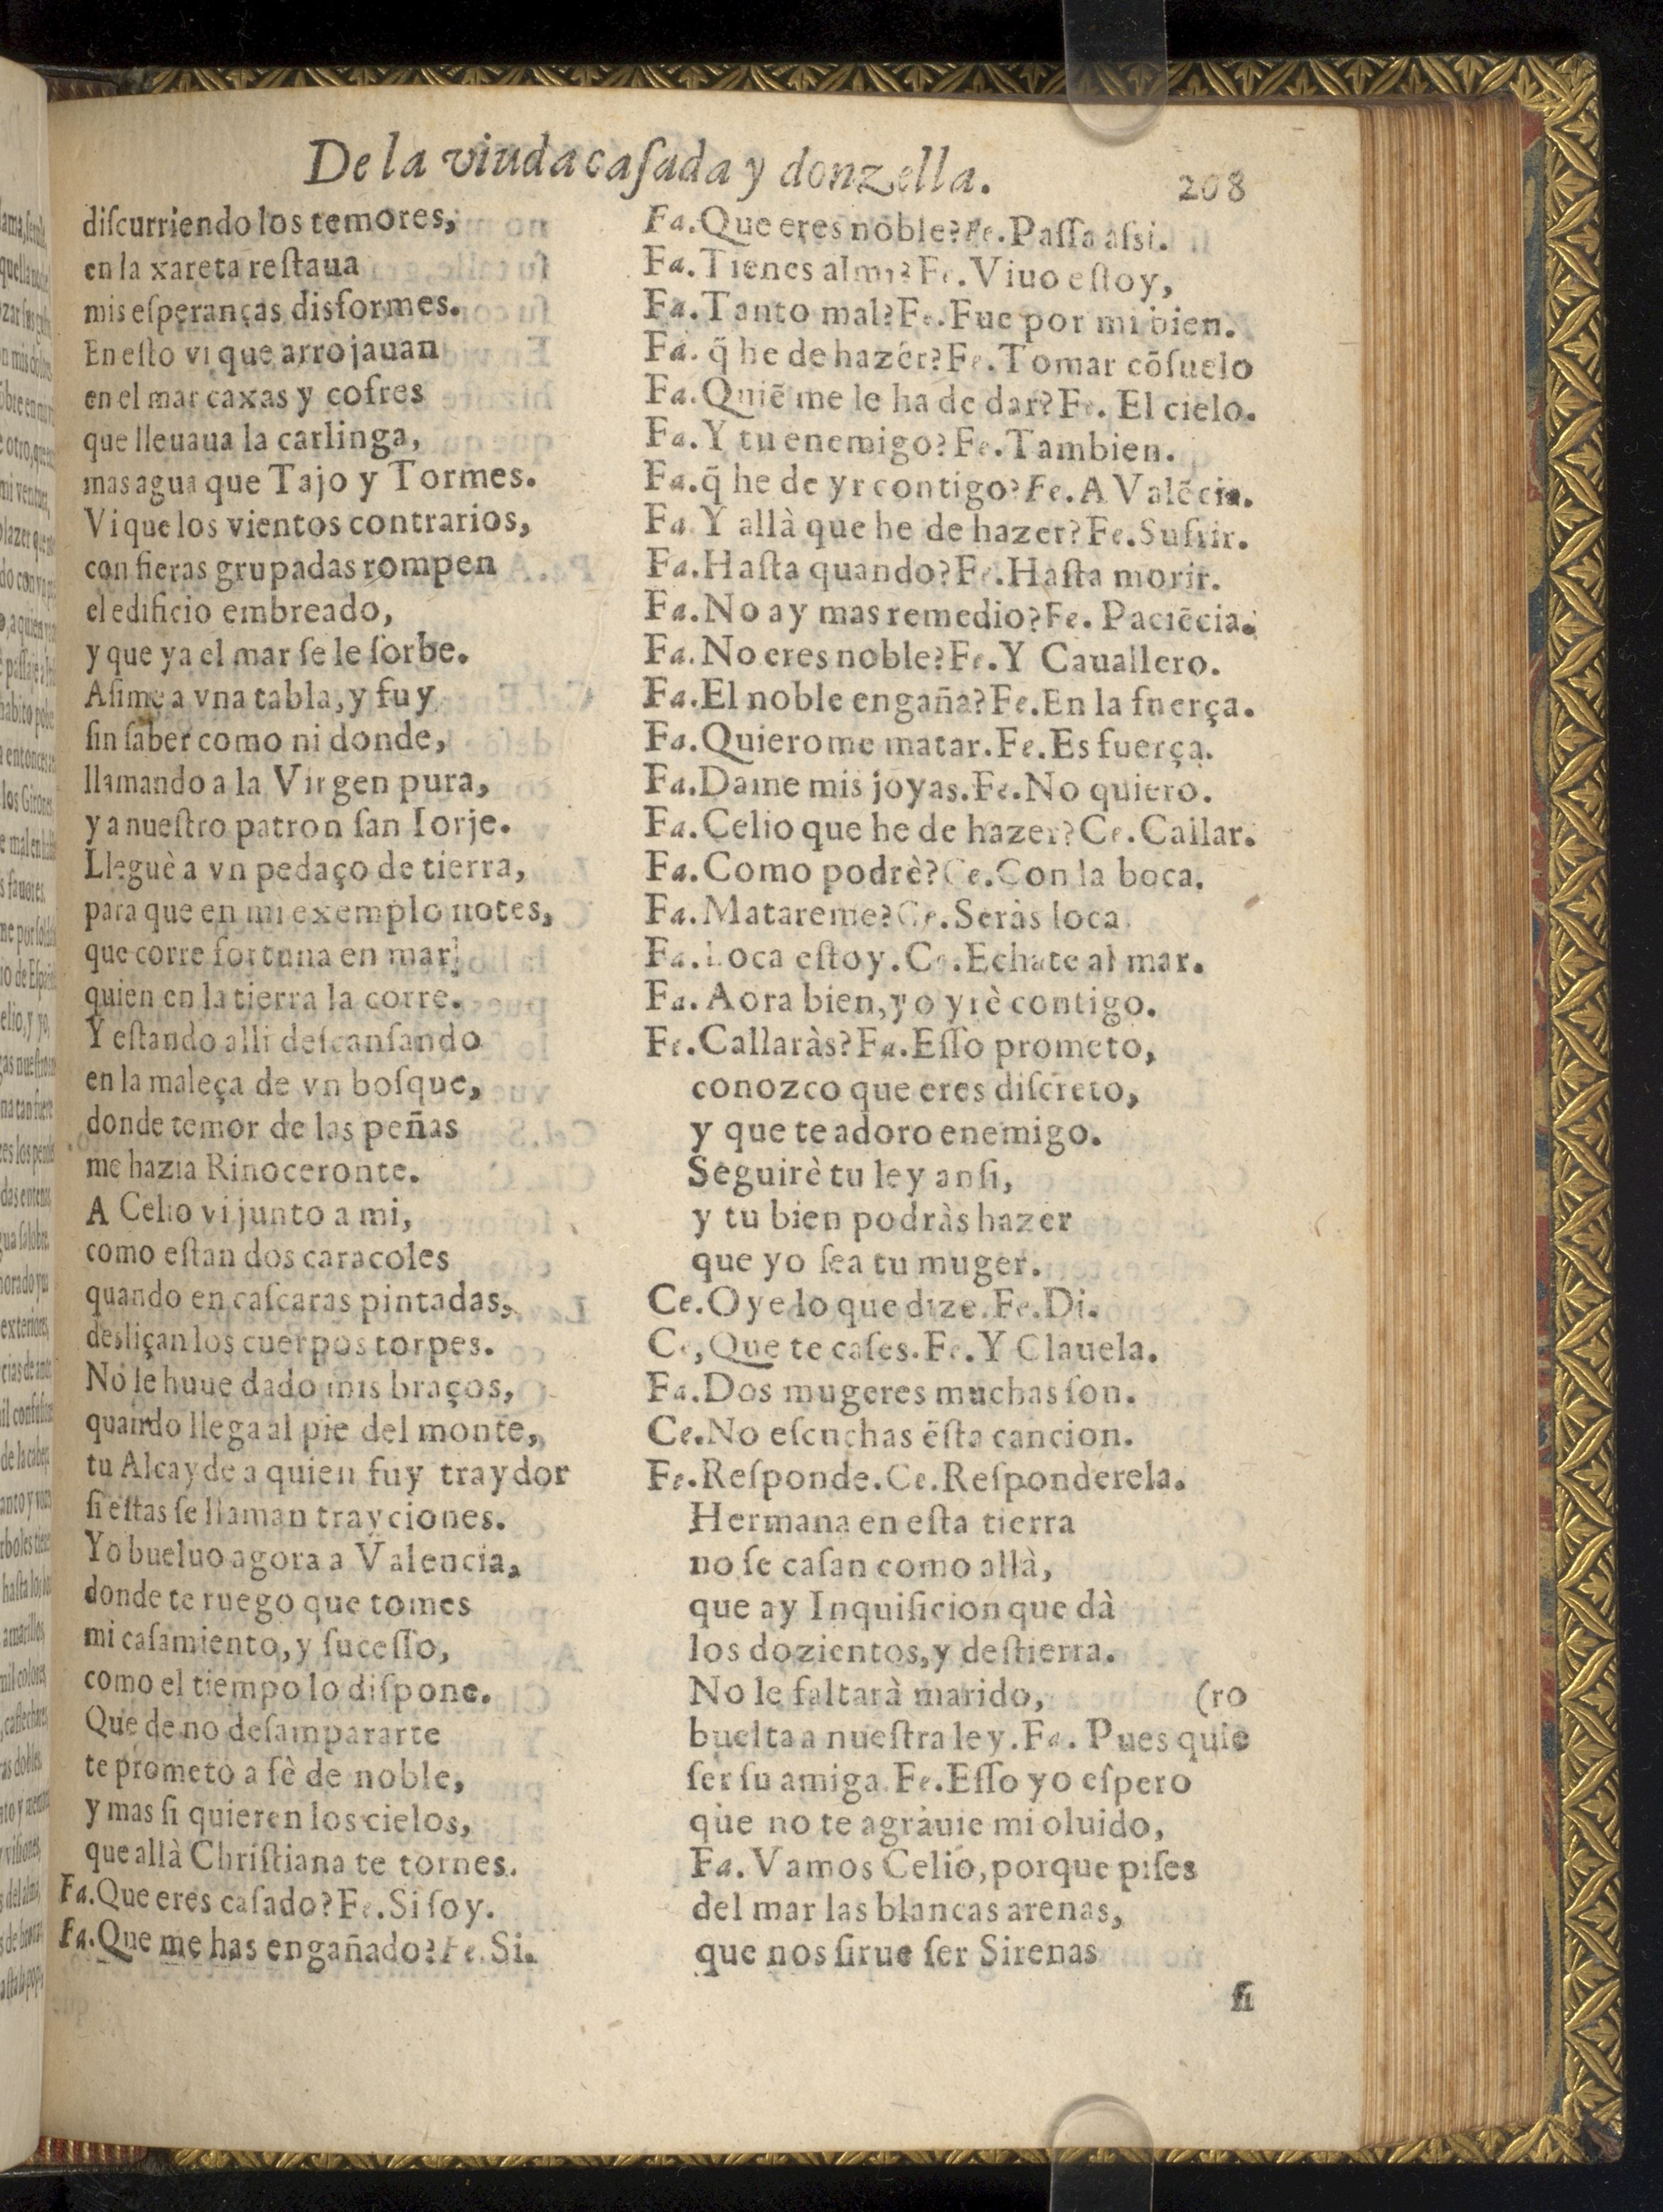 De la viuda caſada y donzella.
208
diſcurriendo los temores,
en la xareta reſtaua
mis eſperanças disformes.
En eſto vi que arrojauan
en el mar caxas y cofres
que lleuaua la carlinga,
mas agua que Tajo y Tormes.
Vi que los vientos contrarios,
con fieras grupadas rompen
el edificio embreado,
y que ya el mar ſe le ſorbe.
Aſime a vna tabla, y fuy
ſin ſaber como ni donde,
llamando a la Virgen pura,
y a nueſtro patron ſan Iorje.
Lleguè a vn pedaço de tierra,
para que en mi exemplo notes,
que corre fortuna en mar
quien en la tierra la corre.
Y eſtando alli deſcanſando
en la maleça de vn boſque,
donde temor de las peñas
me hazia Rinoceronte.
A Celio vi junto a mi,
como eſtan dos caracoles
quando en caſcaras pintadas,
desliçan los cuerpos torpes.
No le huue dado mis braços,
quando llega al pie del monte,
tu Alcayde a quien fuy traydor
ſi eſtas ſe llaman trayciones.
Yo bueluo agora a Valencia,
donde te ruego que tomes
mi caſamiento, y ſuceſſo,
como el tiempo lo diſpone.
Que de no deſampararte
te prometo a fè de noble,
y mas ſi quieren los cielos,
que allà Chriſtiana te tornes.
Fa. Que eres caſado? Fe. Si ſoy.
Fa. Que me has engañado? Fe. Si.
Fa. Que eres noble? Fe. Paſſa aſsi.
Fa. Tienes alma? Fe. Viuo eſtoy,
Fa. Tanto mal? Fe. Fue por mi bien.
Fa. q̃ he de hazer? Fe. Tomar cõſuelo
Fa. Quiẽ me le ha de dar? Fe. El cielo.
Fa. Y tu enemigo? Fe. Tambien.
Fa. q̃ he de yr contigo? Fe. A Valẽcia.
Fa. Y allà que he de hazer? Fe. Sufrir.
Fa. Haſta quando? Fe. Haſta morir.
Fa. No ay mas remedio? Fe. Paciẽcia.
Fa. No eres noble? Fe. Y Cauallero.
Fa. El noble engaña? Fe. En la fnerça.
Fa. Quierome matar. Fe. Es fuerça.
Fa. Dame mis joyas. Fe. No quiero.
Fa. Celio que he de hazer? Ce. Callar.
Fa. Como podrè? Ce. Con la boca.
Fa. Matareme? Ce. Seràs loca.
Fa. Loca eſtoy. Ce. Echate al mar.
Fa. Aora bien, yo yrè contigo.
Fe. Callaràs? Fa. Eſſo prometo,
conozco que eres diſcreto,
y que te adoro enemigo.
Seguirè tu ley anſi,
y tu bien podràs hazer
que yo ſea tu muger.
Ce. Oye lo que dize. Fe. Di.
Ce, Que te caſes. Fe. Y Clauela.
Fa. Dos mugeres muchas ſon.
Ce. No eſcnchas ëſta cancion.
Fe. Reſponde. Ce. Reſponderela.
Hermana en eſta tierra
no ſe caſan como allà,
que ay Inquiſicion que dà
los dozientos, y deſtierra.
No le faltarà marido, (ro
buelta a nueſtra ley. Fa. Pues quie
ſer ſu amiga. Fe. Eſſo yo eſpero
que no te agrauie mi oluido,
Fa. Vamos Celio, porque piſes
del mar las blancas arenas,
que nos ſirue ſer Sirenas
ſi